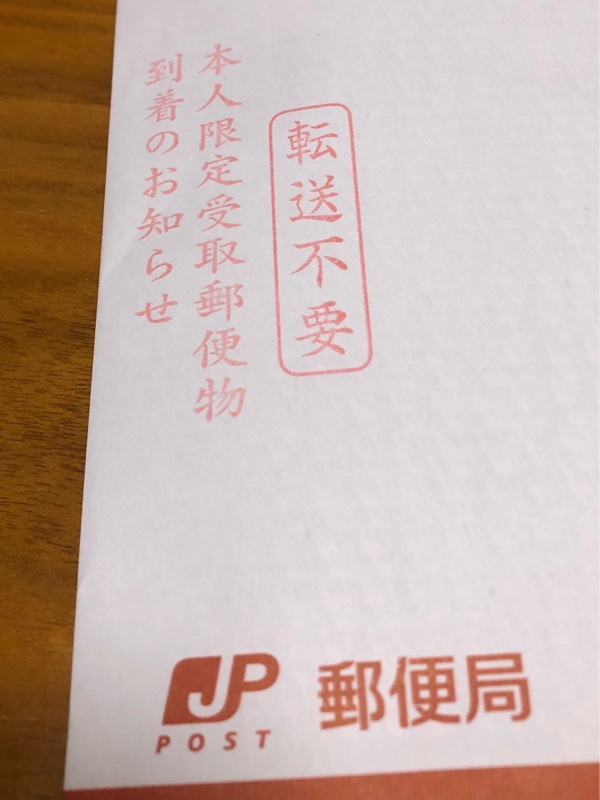 転送不要
本人限定受取郵便物
到着のお知らせ
JP
POST
郵便局